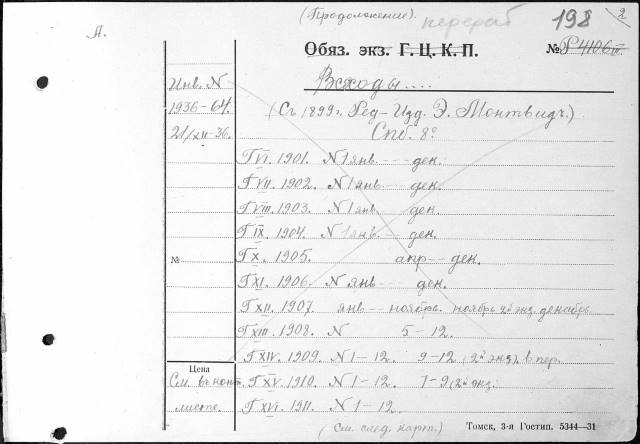 (Продолженіе). перераб 198 2
А.
Обяз. экз. Г. Ц. К. П. № Р4106
Всходы....
Инв. N
1936-64.
(Съ 1899 г. Ред-Изд. Э. Монтвидъ.)
21/XII-36.
Спб. 8º
Г VI. 1901. N 1 янв. --- дек.
Г VII. 1902. N 1 янв. --- дек.
Г VIII. 1903. N 1 янв. --- дек.
Г IX. 1904. N 1 янв. --- дек.
№ Г X. 1905. апр --- дек.
Г XI. 1906. N янв --- дек.
Г XII. 1907. янв --- ноябрь. ноябрь 2й экз. декабрь
Г XIII. 1908. N 5-12.
Г XIV. 1909. N 1-12. 9-12 (2й экз), в пер.
Цена
См. въ конт. Г XV. 1910. N 1-12. 7-9 (2й экз.
листе. Г XVI. 1911. N 1-12.
(См. след. карт.) Томск, 3-я Гостип. 5344—31